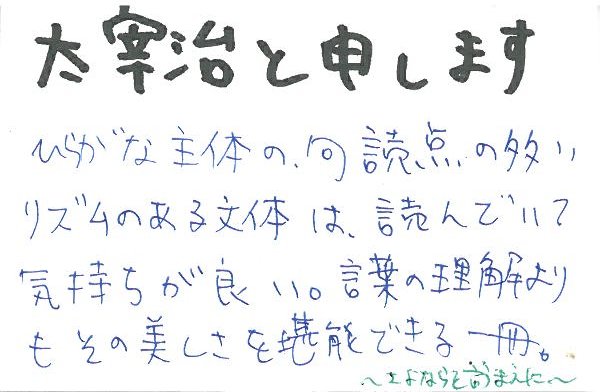 太宰治と申します
ひらがな主体の、句読点の多い
リズムのある文体は、読んでいて
気持ちが良い。言葉の理解より
もその美しさを堪能できる一冊。
～さよならを言うまえに～